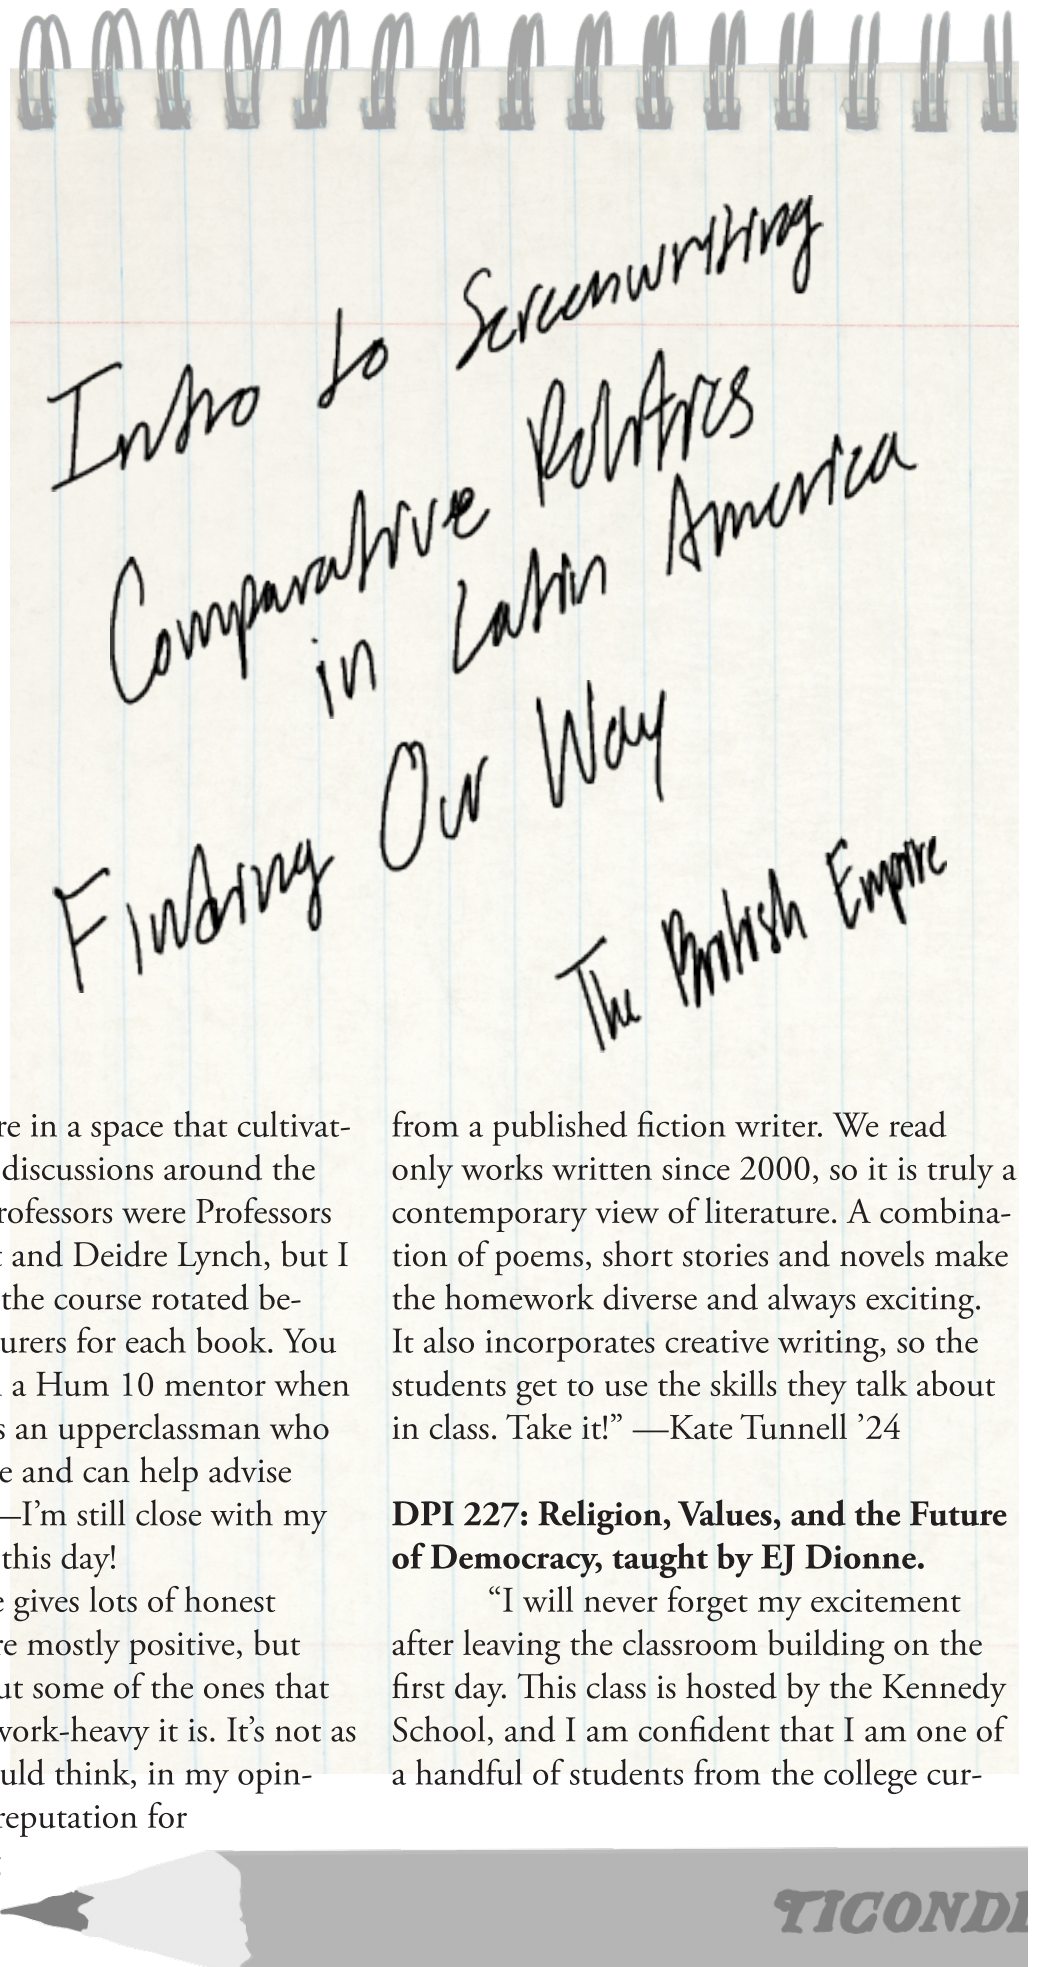 Intro to Screenwriting
Comparative Politics
in Latin America
Finding Our Way
The British Empire
re in a space that cultivat-
discussions around the
rofessors were Professors
and Deidre Lynch, but I
the course rotated be-
urers for each book. You
a Hum 10 mentor when
s an upperclassman who
e and can help advise
—I’m still close with my
this day!
e gives lots of honest
re mostly positive, but
ut some of the ones that
work-heavy it is. It’s not as
uld think, in my opin-
reputation for
from a published fiction writer. We read
only works written since 2000, so it is truly a
contemporary view of literature. A combina-
tion of poems, short stories and novels make
the homework diverse and always exciting.
It also incorporates creative writing, so the
students get to use the skills they talk about
in class. Take it!” —Kate Tunnell ’24
DPI 227: Religion, Values, and the Future
of Democracy, taught by EJ Dionne.
“I will never forget my excitement
after leaving the classroom building on the
first day. This class is hosted by the Kennedy
School, and I am confident that I am one of
a handful of students from the college cur-
TICONDE